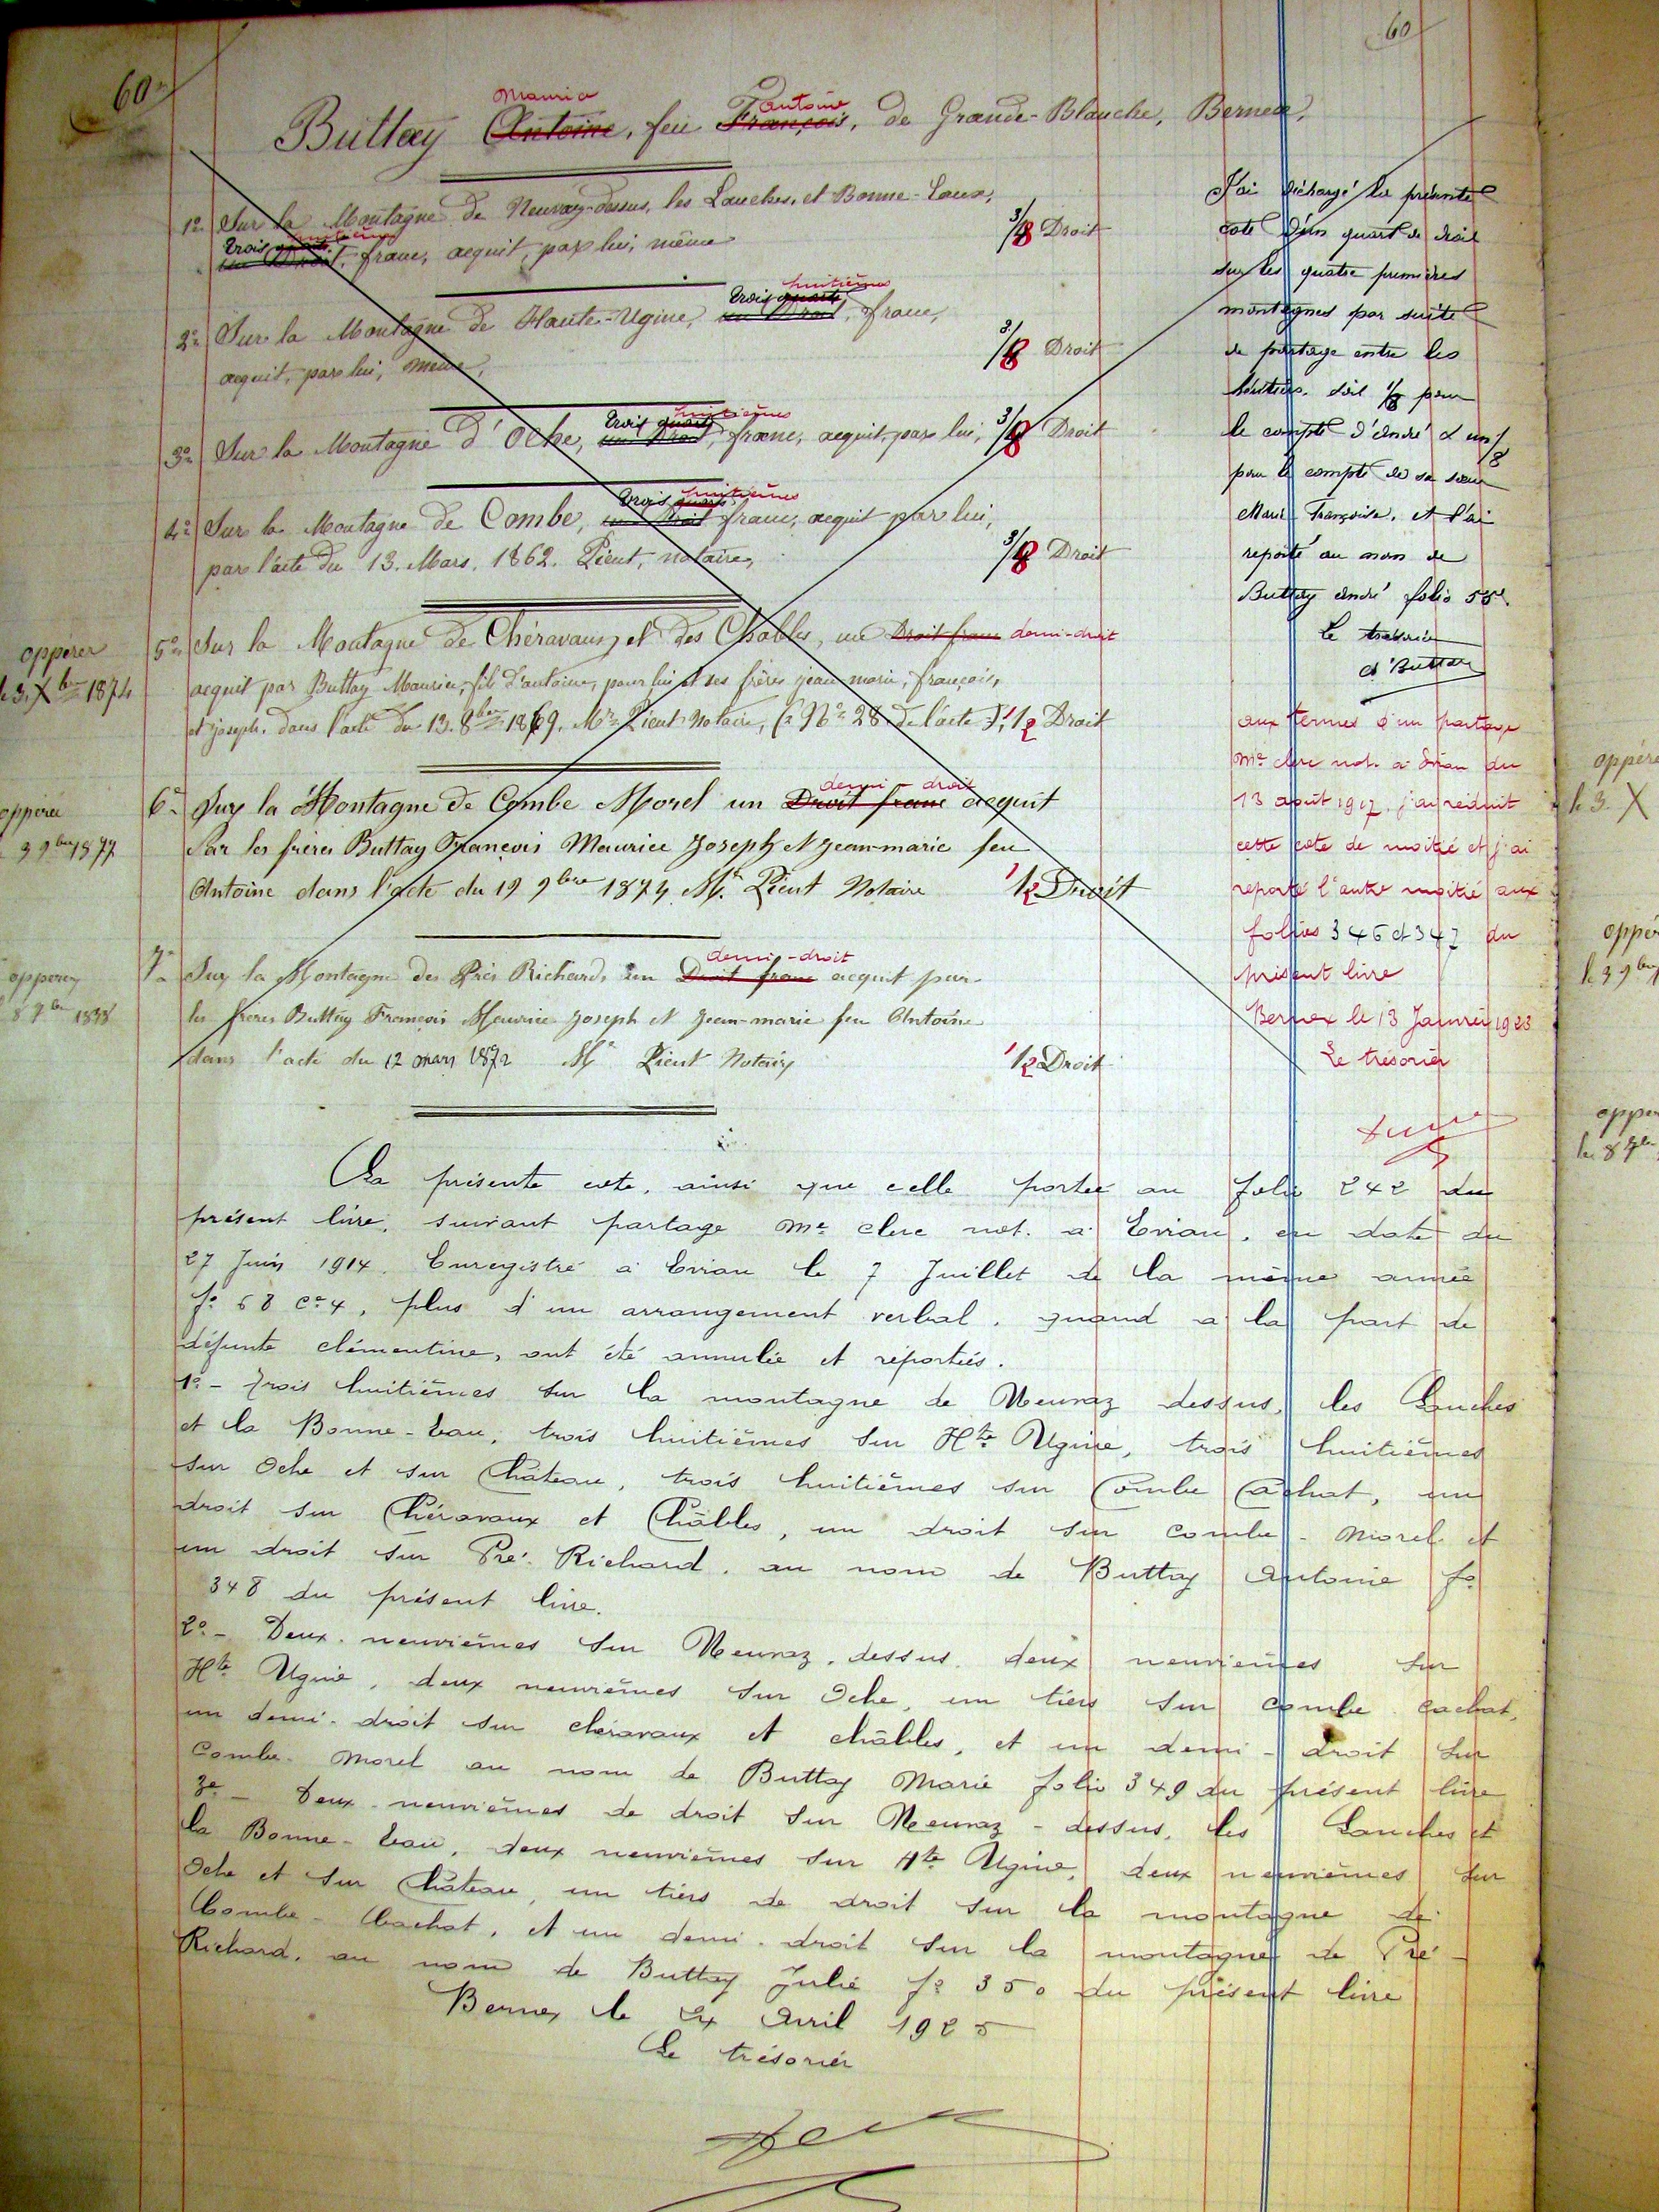 60
60
Maurice antoine
Buttay Antoine, feu François, de Grande-Blanche, Bernex,
1° Sur la Montagne de Neuvaz-dessus, les Lauches, et Bonne-Eaux,
huitièmes
trois quarts
un Droit, franc, acquit, par lui, même 3/8 Droit
huitièmes
trois quarts
2° Sur la Montagne de Haute-Ugine, un Droit, franc,
acquit, par lui, même, 3/8 Droit
huitièmes
trois quarts
3° Sur la Montagne d'Oche, un Droit, franc, acquit, par lui, 3/8 Droit
huitièmes
trois quarts
4° Sur la Montagne de Combe, un Droit franc, acquit par lui,
par l'acte du 13. Mars. 1862. Pient, notaire, 3/8 Droit
5° Sur la Montagne de Chéravaux, et des Chables, un Droit franc demi-droit
acquit par Buttay Maurice, fils d'antoine, pour lui et ses frères jean marie, françois,
et joseph. dans l'acte du 13. 8bre 1869. Me Pient Notaire, (N° 28 de l'acte) 1/2 Droit
opperer
le 3. Xbre 1874
demi-droit
6° Sur la Montagne de Combe Morel un Droit franc acquit
Par les frères Buttay François Maurice Joseph et Jean-marie feu
Antoine dans l'acte du 19 9bre 1874 Me. Pient Notaire 1/2 Droit
opperée
3 9bre 1877
demi-droit
7° Sur la Montagne des Prés Richard, un Droit franc acquit par
les freres Buttay François Maurice Joseph et Jean-marie feu Antoine
dans l'acte du 12 mars 1872 Me Pient Notaire 1/2 Droit
opperez
8 9bre 1888
J'ai déchargé la présente
cote d'un quart de droit
sur les quatre premières
montagnes par suite
de partage entre les
héritiers. soit 1/8 pour
le compte d'André & un 1/8
pour le compte de sa sœur
Marie Françoise, et l'ai
reporté au nom de
Buttay André folio 55.
Le trésorier
d'Buttay
aux termes d'un partage
Me clerc not. à Evian du
13 août 1917, j'ai réduit
cette cote de moitié et j'ai
reporté l'autre moitié aux
folios 346 et 347 du
présent livre
Bernex le 13 Janvier 1923
Le trésorier
La présente cote, ainsi que celle portée au folio 242 du
présent livre, suivant partage Me clerc not. à Evian, en date du
27 Juin 1914. Enregistré à Evian le 7 Juillet de la même année
f° 68 ce 4, plus d'un arrangement verbal, quand a la part de
défunte clémentine, ont été annulée et réportés.
1° - Trois huitièmes sur la montagne de Neuvaz dessus, les Lauches
et la Bonne-Eau, trois huitièmes sur Hte Ugine, trois huitièmes
sur Oche et sur Château, trois huitièmes sur Combe Cachat, un
droit sur Chéravaux et Châbles, un droit sur combe-Morel et
un droit sur Pré-Richard, au nom de Buttay Antoine f°
348 du présent livre.
2° - Deux-neuvièmes sur Neuvaz-dessus, deux neuvièmes sur
Hte Ugine, deux neuvièmes sur Oche, un tiers sur combe cachat,
un demi-droit sur chéravaux et châbles, et un demi-droit sur
Combe-Morel au nom de Buttay Marie folio 349 du présent livre
3° - Deux-neuvièmes de droit sur Neuvaz-dessus, les Lauches et
la Bonne-Eau, deux neuvièmes sur Hte Ugine, deux neuvièmes sur
Oche et sur Château, un tiers de droit sur la montagne de
Combe-Cachat, et un demi-droit sur la montagne de Pré-
Richard, au nom de Buttay Julie f° 350 du présent livre
Bernex le 24 Avril 1925
Le trésorier
oppére
le 3. X
le 3 9bre
le 8